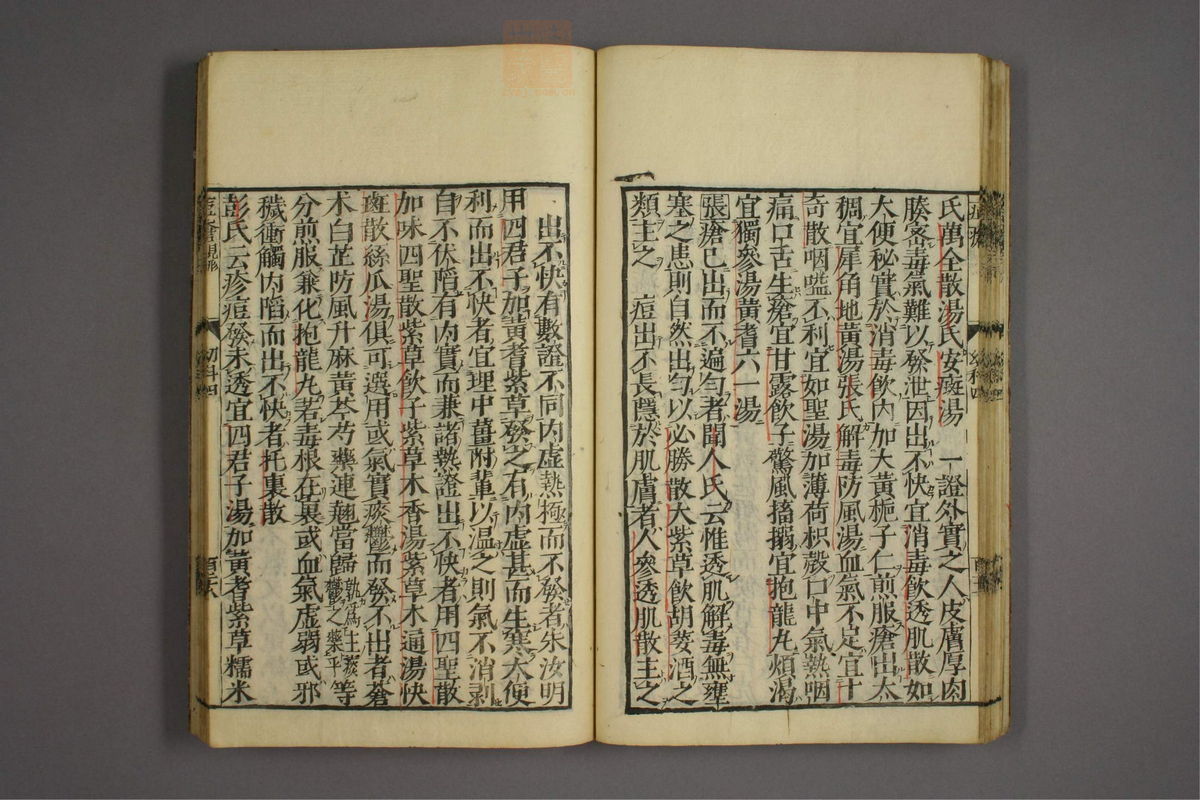 氏萬全散湯氏安斑湯　一證外實之人皮膚厚肉
腠密毒氣難以發泄因出不快宜消毒飲透肌散如
大便秘實於消毒飲內加大黃梔子仁煎服瘡出太
稠宜犀角地黃湯張氏解毒防風湯血氣不足宜十
奇散咽嗌不利宜如聖湯加薄荷枳殼口中氣熱咽
痛口舌生瘡宜甘露飲子驚風搐搦宜抱龍丸煩渴
宜獨參湯黃耆六一湯
張瘡已出而不遍勻者聞人氏云惟透肌解毒無壅
塞之患則自然出勻以必勝散大紫草飲胡荽酒之
類主之　痘出不長隱於肌膚者人參透肌散主之
出不快有數證不同內虛熱極而不發者朱汝明
用四君子加黃耆紫草發之有內虛甚而生寒大便
利而出不快者宜理中薑附輩以温之則氣不消剥
自不伏陷有內實而兼諸熱證出不快者用四聖散
加味四聖散紫草飲子紫草木香湯紫草木通湯快
斑散絲瓜湯俱可選用或氣實痰鬱而發不出者蒼
术白芷防風升麻黃芩芍藥連翹當歸孰爲主痰鬱之藥平等
分煎服兼化抱龍丸若毒根在裏或血氣虛弱或邪
穢衝觸內陷而出不快者托裏散
彭氏云疹痘發未透宜四君子湯加黃耆紫草糯米
幼科四